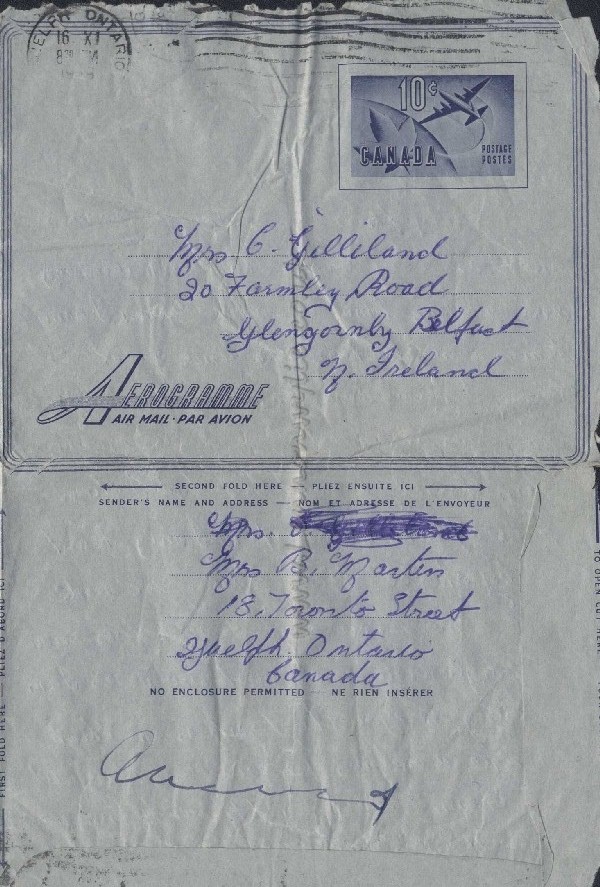 GUELPH ONTARIO
16 XI
10¢
CANADA
POSTAGE
POSTES
Mrs C. Gilliland
20 Farmley Road
Glengornly Belfast
N. Ireland
AEROGRAMME
AIR MAIL · PAR AVION
SECOND FOLD HERE — PLIEZ ENSUITE ICI
SENDER'S NAME AND ADDRESS — NOM ET ADRESSE DE L'ENVOYEUR
Mrs.
Mrs B. Martin
18, Toronto Street
Guelph. Ontario
Canada
NO ENCLOSURE PERMITTED — NE RIEN INSÉRER
FIRST FOLD HERE — PLIEZ D'ABORD ICI
TO OPEN CUT HERE